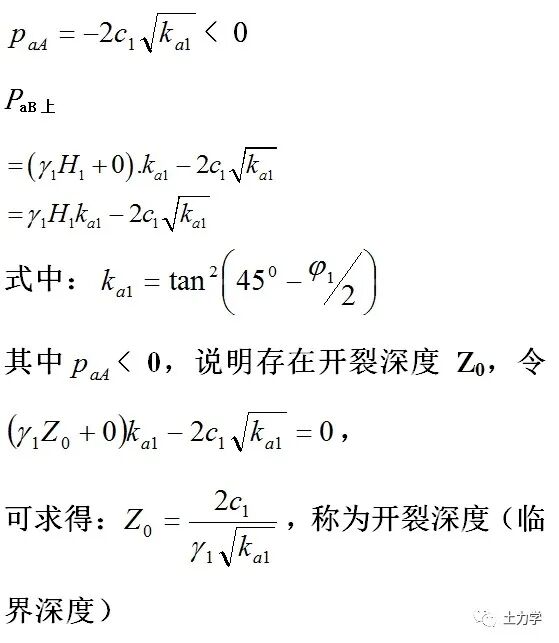 p_{aA} = -2c_1\sqrt{k_{a1}} < 0
P_{aB上}
= (γ_1H_1 + 0).k_{a1} - 2c_1\sqrt{k_{a1}}
= γ_1H_1k_{a1} - 2c_1\sqrt{k_{a1}}
式中： k_{a1} = tan^2(45^0 - φ_1/2)
其中 p_{aA} < 0，说明存在开裂深度 Z0，令
(γ_1Z_0 + 0)k_{a1} - 2c_1\sqrt{k_{a1}} = 0，
可求得：Z_0 = \frac{2c_1}{γ_1\sqrt{k_{a1}}}，称为开裂深度（临
界深度）
土力学